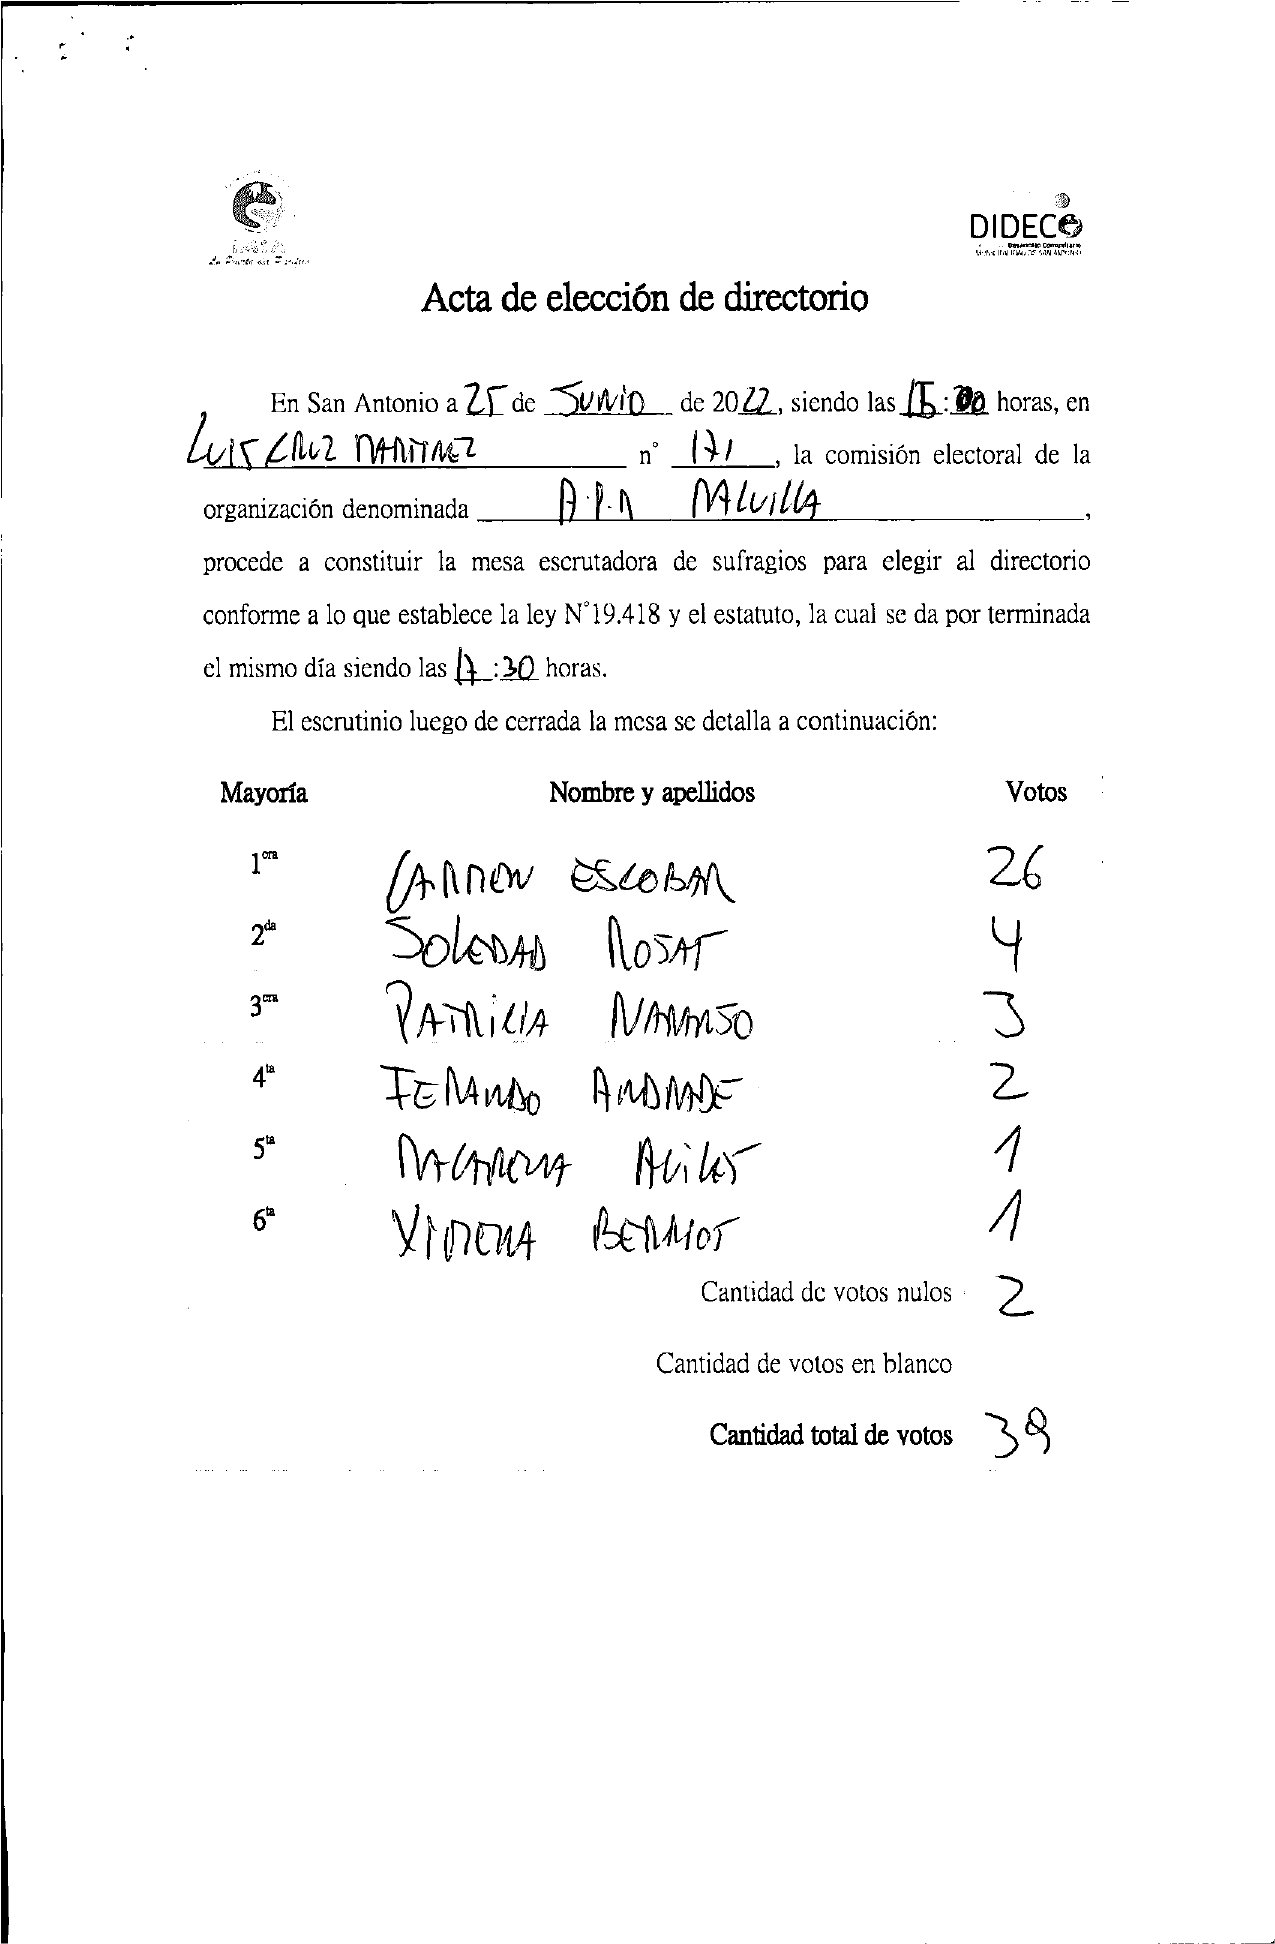 DIDECO
Acta de elección de directorio
En San Antonio a 25 de JUNIO de 2022, siendo las : 00 horas, en
LUIS CRUZ MARTINEZ n° 171, la comisión electoral de la
organización denominada A.P.R MALVILLA,
procede a constituir la mesa escrutadora de sufragios para elegir al directorio
conforme a lo que establece la ley N°19.418 y el estatuto, la cual se da por terminada
el mismo día siendo las 17:30 horas.
El escrutinio luego de cerrada la mesa se detalla a continuación:
Mayoría Nombre y apellidos Votos
1era CARMEN ESCOBAR 26
2da SOLEDAD ROSAS 4
3era PATRICIA 3
4ta FERNANDO ANDRADE 2
5ta MACARENA 1
6ta XIMENA BERRIOS 1
Cantidad de votos nulos 2
Cantidad de votos en blanco
Cantidad total de votos 39